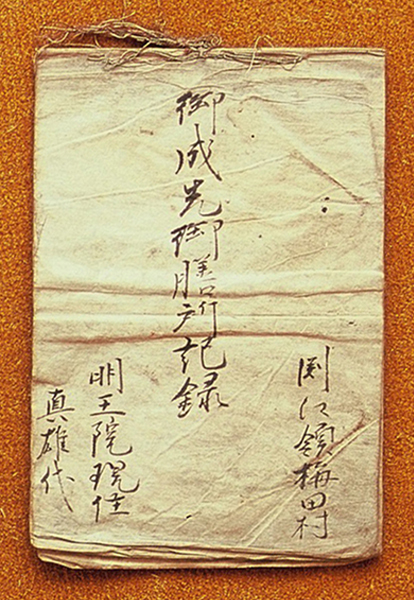 渕江領梅田村
御成先御膳所記録
明王院現住
真雄代